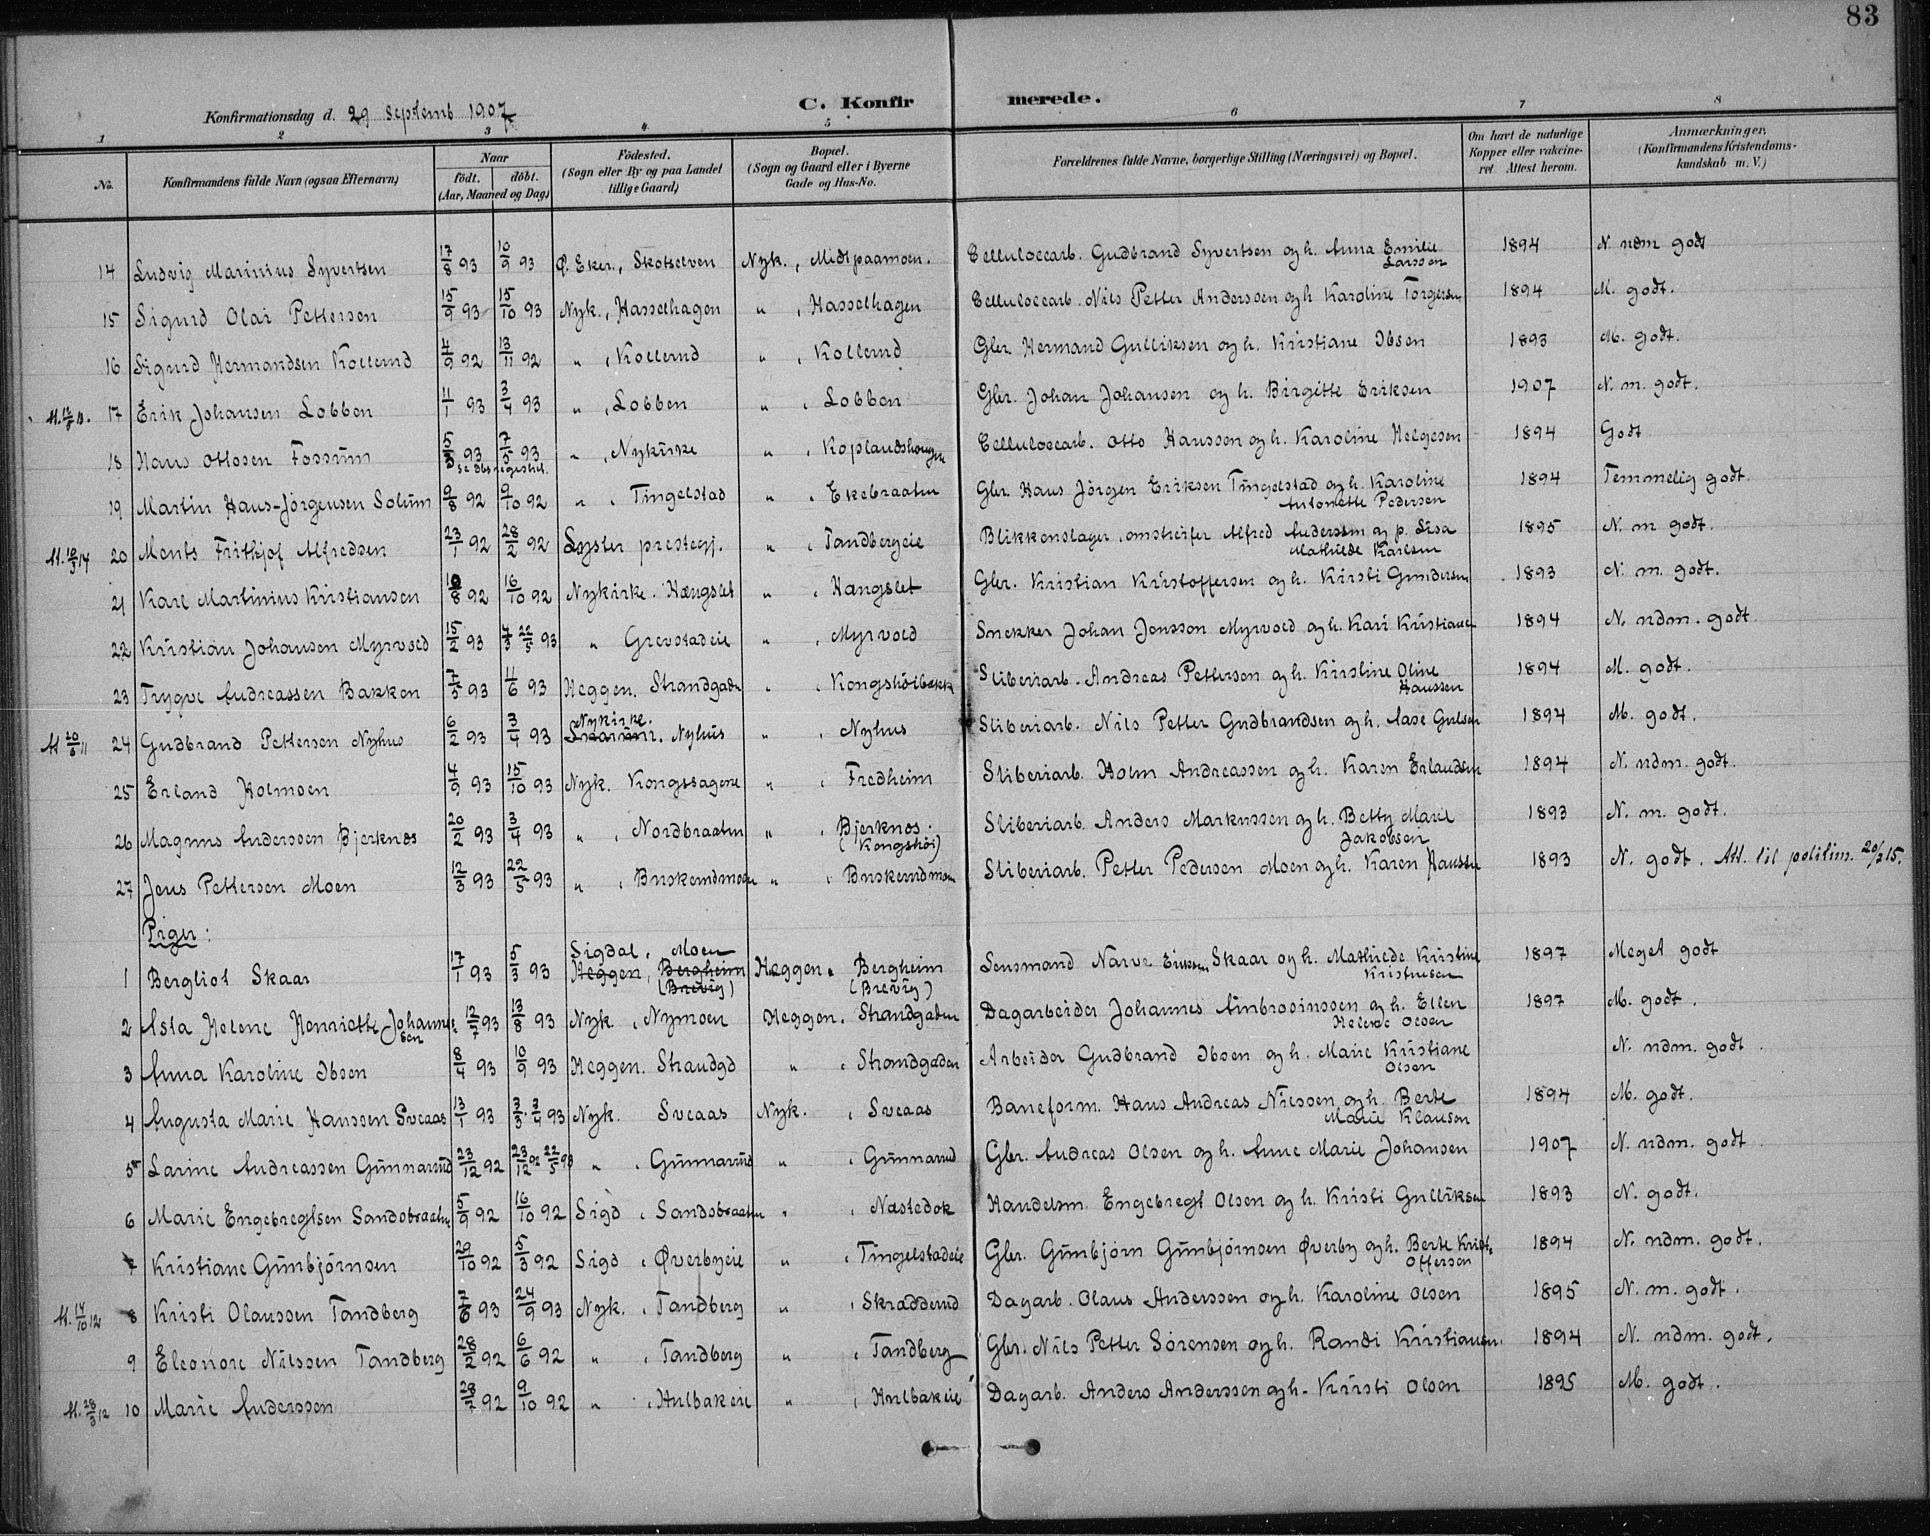 83
Konfirmationsdag d. 29 Septemb 1907
C. Konfirmerede.
1 2 3 4 5 6 7 8
No. Konfirmandens fulde Navn (ogsaa Efternavn) Naar født. døbt. (Aar, Maaned og Dag) Fødested. (Sogn eller By og paa Landet tillige Gaard) Bopæl. (Sogn og Gaard eller i Byerne Gade og Hus-No. Forældrenes fulde Navne, borgerlige Stilling (Næringsvei) og Bopæl. Om havt de naturlige Kopper eller vakcineret. Attest herom. Anmærkninger. (Konfirmandens Kristendomskundskab m. V.)
14 Ludvig Marinius Syvertsen 17/8 93 10/9 93 Ø. Eker., Skotselven Nyk., Midtpaamoen. Cellulosearb. Gudbrand Syvertsen og h. Anna Emilie Larssen 1894 N. ndm godt
15 Sigurd Olai Pettersen 15/9 93 15/10 93 Nyk., Hasselhagen " , Hasselhagen Celluloсearb. Nils Petter Anderssen og h Karoline Torgersen 1894 M. godt.
16 Sigurd Hermandsen Kollerud 4/9 92 13/11 92 " , Kollerud " , Kollerud Gbr. Hermand Gulliksen og h. Kristiane Ibsen 1893 M. godt.
17 Erik Johansen Lobben 11/1 93 3/4 93 " , Lobben " , Lobben Gbr. Johan Johansen og h. Birgitte Eriksen 1907 N. m. godt.
18 Hans Ottosen Fossum 93 7/5 93 " , Nykirke " , Koplandshaugen Celluloсearb. Otto Hanssen og h. Karoline Helgesen 1894 Godt
19 Martin Hans-Jørgensen Solum 9/8 92 9/10 92 " , Tingelstad " , Ekebraaten Gbr. Hans Jørgen Eriksen Tingelstad og h. Karoline Antonette Pedersen 1894 Temmelig godt.
M. 10/5 14 20 Ments Frithjof Alfredsen 23/1 92 28/2 92 Lyster prestegj. " , Tandbergeie Blikkenslager, omstreifer Alfred Anderssen og p. Lisa Mathilde Karlsen 1895 N. m godt.
21 Karl Martinius Kristiansen 92 16/10 92 Nykirke. Hængslet " , Hængslet Gbr. Kristian Kristoffersen og h. Kirsti Gundersen 1893 N. m. godt.
22 Kristian Johansen Myrvold 15/2 93 93 " Grevstadeie " , Myrvold Snekker Johan Jensson Myrvold og h. Kari Kristiane 1894 N. ndm. godt.
23 Trygve Andreassen Bakken 7/5 93 11/6 93 Heggen. Strandgaden " , Kongshøibakk Sliberiarb. Andreas Pettersen og h. Kirstine Oline Hanssen 1894 M. godt.
M 20/6 11 24 Gudbrand Pettersen Nyhus 6/2 93 3/4 93 Nykirke. Nyhus " , Nyhus Sliberiarb. Nils Petter Gudbrandsen og h. Aase Gulsen 1894 M. godt.
25 Erland Holmsen 4/9 93 15/10 93 Nyk. Kongssagene " , Fredheim Sliberiarb. Holm Andreassen og h. Karen Erlandsen 1894 N. ndm. godt.
26 Magnus Anderssen Bjerknes 20/2 93 3/4 93 " , Nordbraaten " , Bjerknes. (Kongshøi) Sliberiarb. Anders Markussen og h. Betty Marie Jakobsen 1893 N. m. godt.
27 Jens Pettersen Moen 12/3 93 22/5 93 " , Buskerudmoen " , Buskerudmoen Sliberiarb. Petter Pedersen Moen og h. Karen Hanssen 1893 N. godt. Att. til politim. 20/2 15.
Piger:
1 Bergliot Skaar 17/1 93 5/3 93 Sigdal, Moen Heggen, Bergheim (Brevig) Heggen. Bergheim (Brevig) Lensmand Narve Erikssen Skaar og h. Mathilde Kristine Kristensen 1897 Meget godt
2 Asta Helene Henriette Johannessen 12/7 93 13/8 93 Nyk. , Nymoen Heggen. Strandgaden Dagarbeider Johannes Ambrosinussen og h. Ellen Helene Olsen 1897 M. godt.
3 Anna Karoline Ibsen 8/4 93 10/9 93 Heggen. Strandgd " , Strandgaden Arbeider Gudbrand Ibsen og h. Marie Kristiane Olsen N. ndm. godt.
4 Augusta Marie Hanssen Sveaas 13/1 93 3/3. 3/4 93 Nyk. Sveaas Nyk. , Sveaas Baneform. Hans Andreas Nilssen og h. Berte Marie Klausen 1894 M. godt.
5 Larine Andreassen Gunnarud 23/12 92 23/12 92 22/5 93 " , Gunnarud " , Gunnarud Gbr. Andreas Olsen og h. Anne Marie Johansen 1907 N. ndm. godt.
6 Marie Engebregtsen Sandsbraaten 5/9 92 16/10 92 Sigd , Sandsbraaten " , Nastedok Handelsm. Engebregt Olsen og h. Kristi Gulliksen 1893 N. godt.
7 Kristiane Gunbjørnsen 20/10 92 5/3 92 Sigd , Øverbyeie " , Tingelstadeie Gbr. Gunbjørn Gunbjørnsen Øverby og h. Berte Kristoffersen 1894 N. ndm. godt.
M. 14/10 12 8 Kristi Olaussen Tandberg 93 24/9 93 Nyk. , Tandberg " , Skradderud Dagarb. Olaus Anderssen og h. Karoline Olsen 1895 N. m. godt.
9 Eleonore Nilssen Tandberg 28/2 92 6/6 92 " , Tandberg " , Tandberg Gbr. Nils Petter Sørensen og h. Randi Kristiansen. 1894 N. ndm. godt.
M. 28/3 12 10 Marie Anderssen 92 9/10 92 " , Hulbakeie " , Hulbakeie Dagarb. Anders Anderssen og h. Kirsti Olsen 1895 M. godt.